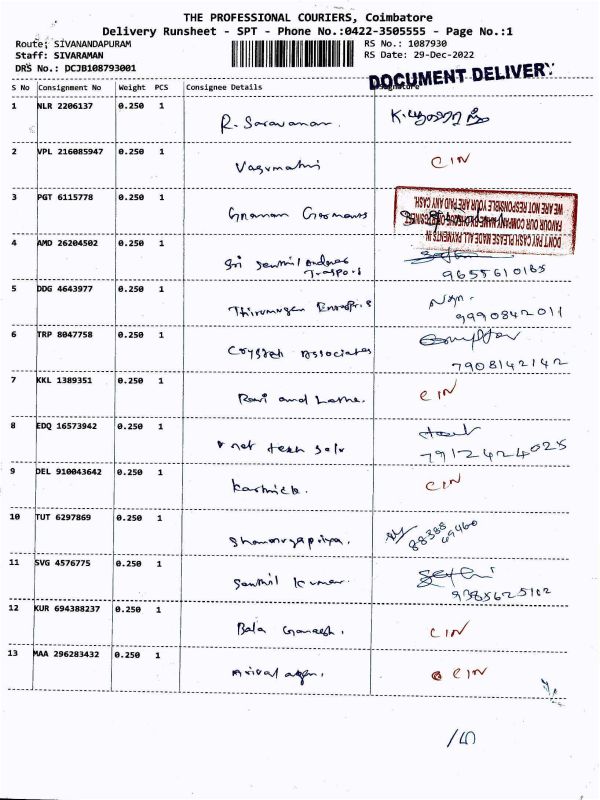 THE PROFESSIONAL COURIERS, Coimbatore
Delivery Runsheet - SPT - Phone No.:0422-3505555 - Page No.:1
Route: SIVANANDAPURAM RS No.: 1087930
Staff: SIVARAMAN RS Date: 29-Dec-2022
DRS No.: DCJB108793001
DOCUMENT DELIVERY
S No Consignment No Weight PCS Consignee Details
1 NLR 2206137 0.250 1
R. Saravanan
2 VPL 216085947 0.250 1
Vasumathi CIN
3 PGT 6115778 0.250 1
DON'T PAY CASH PLEASE MADE ALL PAYMENTS IN
WE ARE NOT RESPONSIBLE YOUR ARE PAID ANY CASH.
4 AMD 26204502 0.250 1
Sri Senthil
9655610165
5 DDG 4643977 0.250 1
9990842011
6 TRP 8047758 0.250 1
Associates
7908142142
7 KKL 1389351 0.250 1
Ravi and CIN
8 EDQ 16573942 0.250 1
net tech
7912424025
9 DEL 910043642 0.250 1
Karthick. CIN
10 TUT 6297869 0.250 1
88388
69460
11 SVG 4576775 0.250 1
Senthil Kumar.
9385625102
12 KUR 694388237 0.250 1
Bala Ganesh. CIN
13 MAA 296283432 0.250 1
CIN